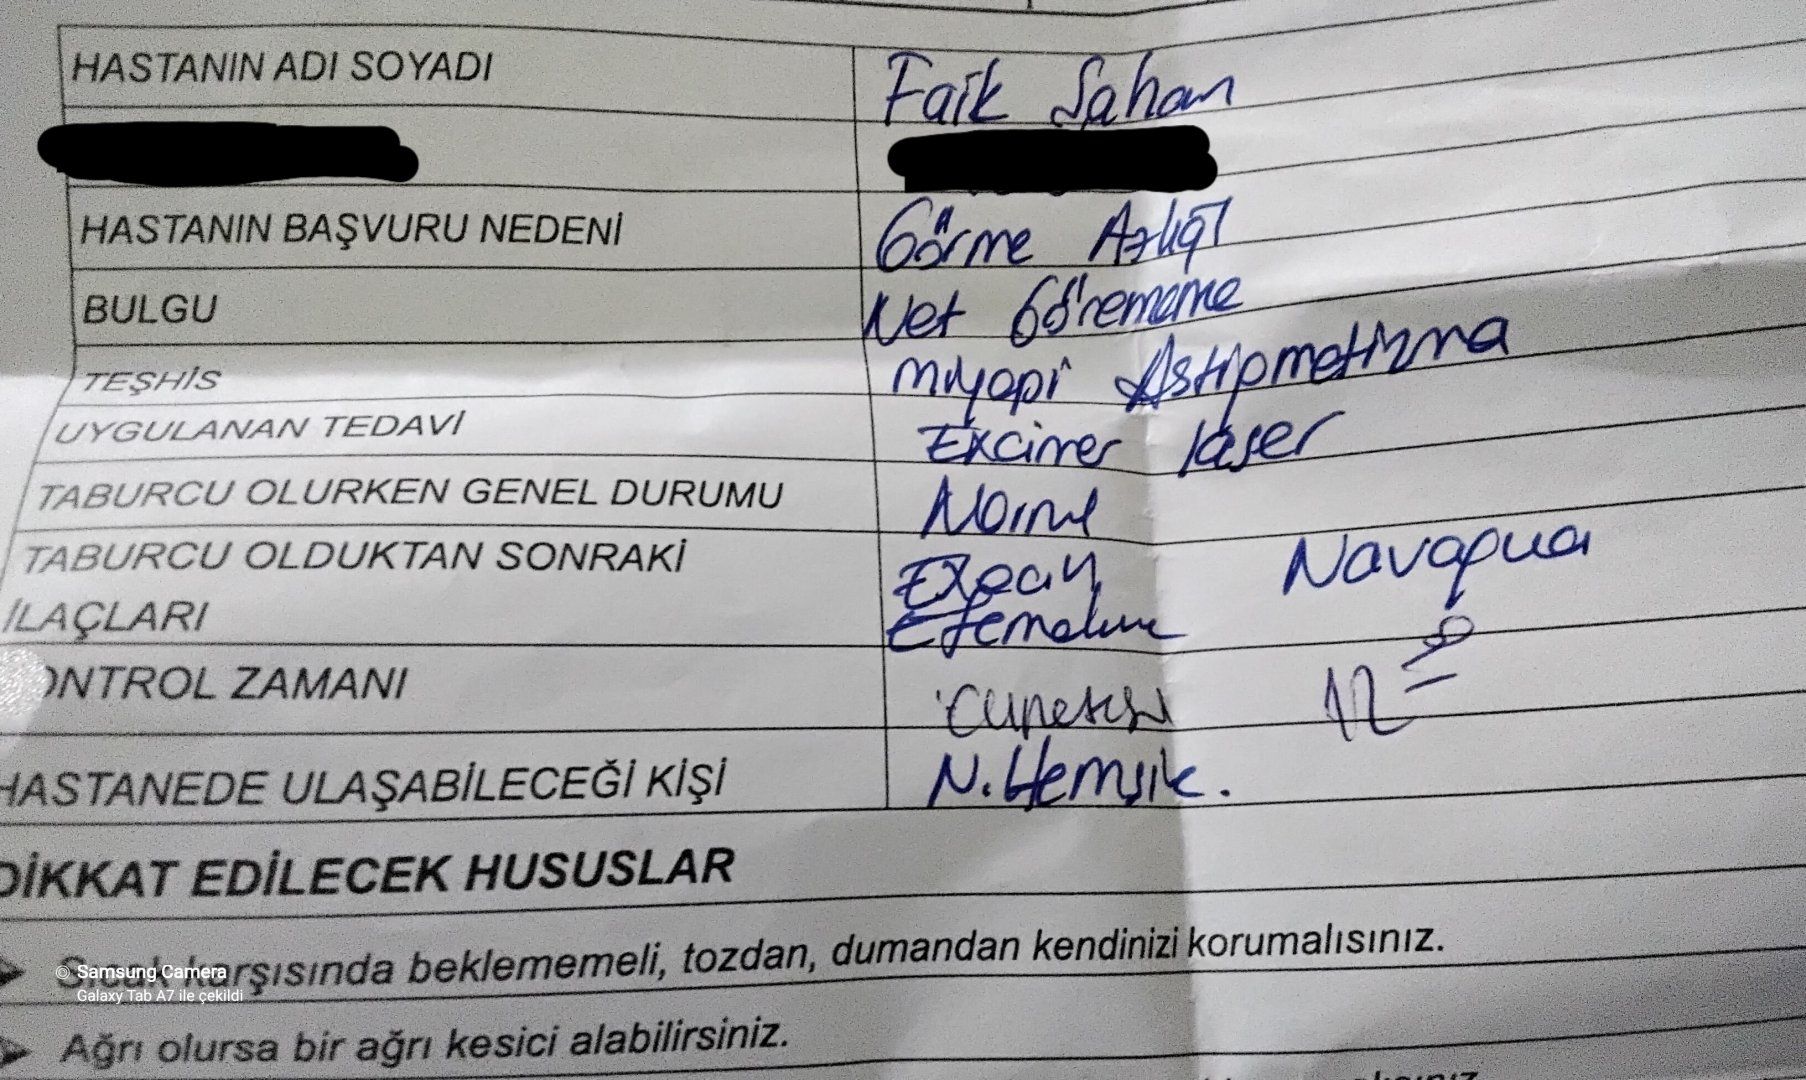 HASTANIN ADI SOYADI Faik Şahan
HASTANIN BAŞVURU NEDENİ Görme Azlığı
BULGU Net Görememe
TEŞHİS Miyopi Astigmatizma
UYGULANAN TEDAVİ Excimer laser
TABURCU OLURKEN GENEL DURUMU
TABURCU OLDUKTAN SONRAKİ Exocin Navaqua
İLAÇLARI Efemoline
ONTROL ZAMANI Cumartesi 12
HASTANEDE ULAŞABİLECEĞİ KİŞİ N. Hemşik.
DİKKAT EDİLECEK HUSUSLAR
Sıcak karşısında beklememeli, tozdan, dumandan kendinizi korumalısınız.
© Samsung Camera
Galaxy Tab A7 ile çekildi
Ağrı olursa bir ağrı kesici alabilirsiniz.